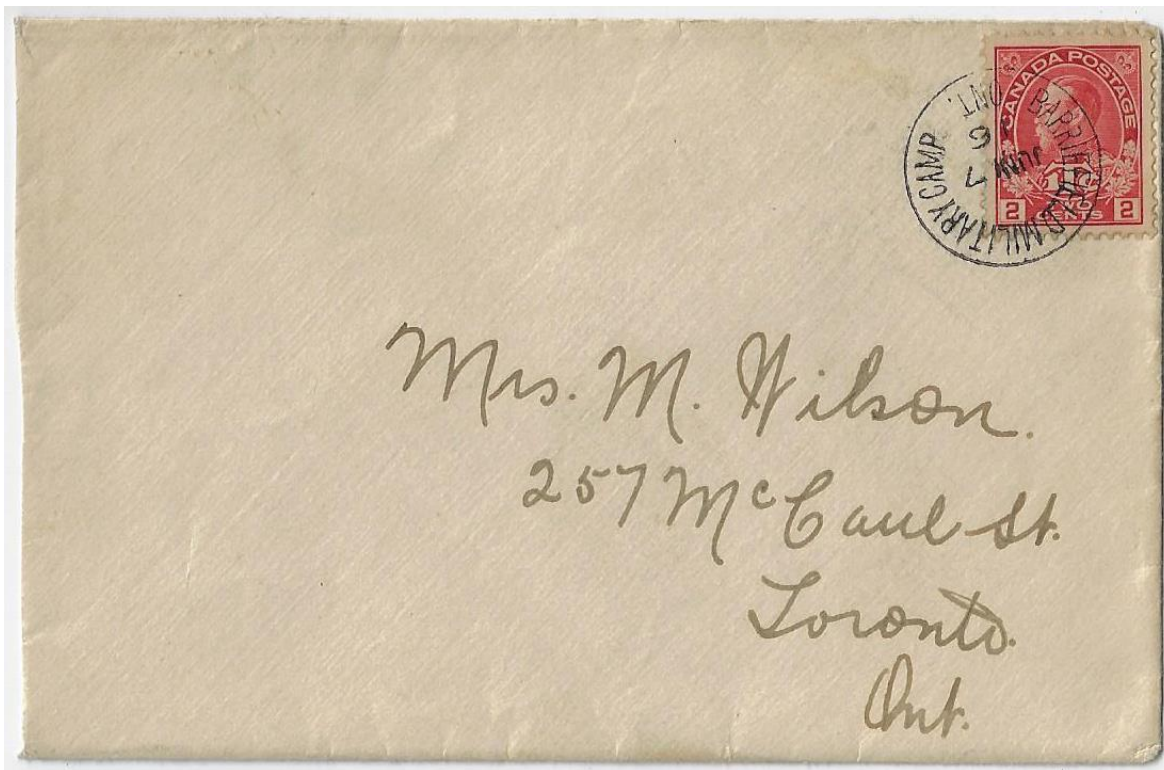 CANADA POSTAGE
2 CENTS 2
BARRIEFIELD MILITARY CAMP. ONT.
JUN 7
16
Mrs. M. Wilson.
257 McCaul St.
Toronto.
Ont.